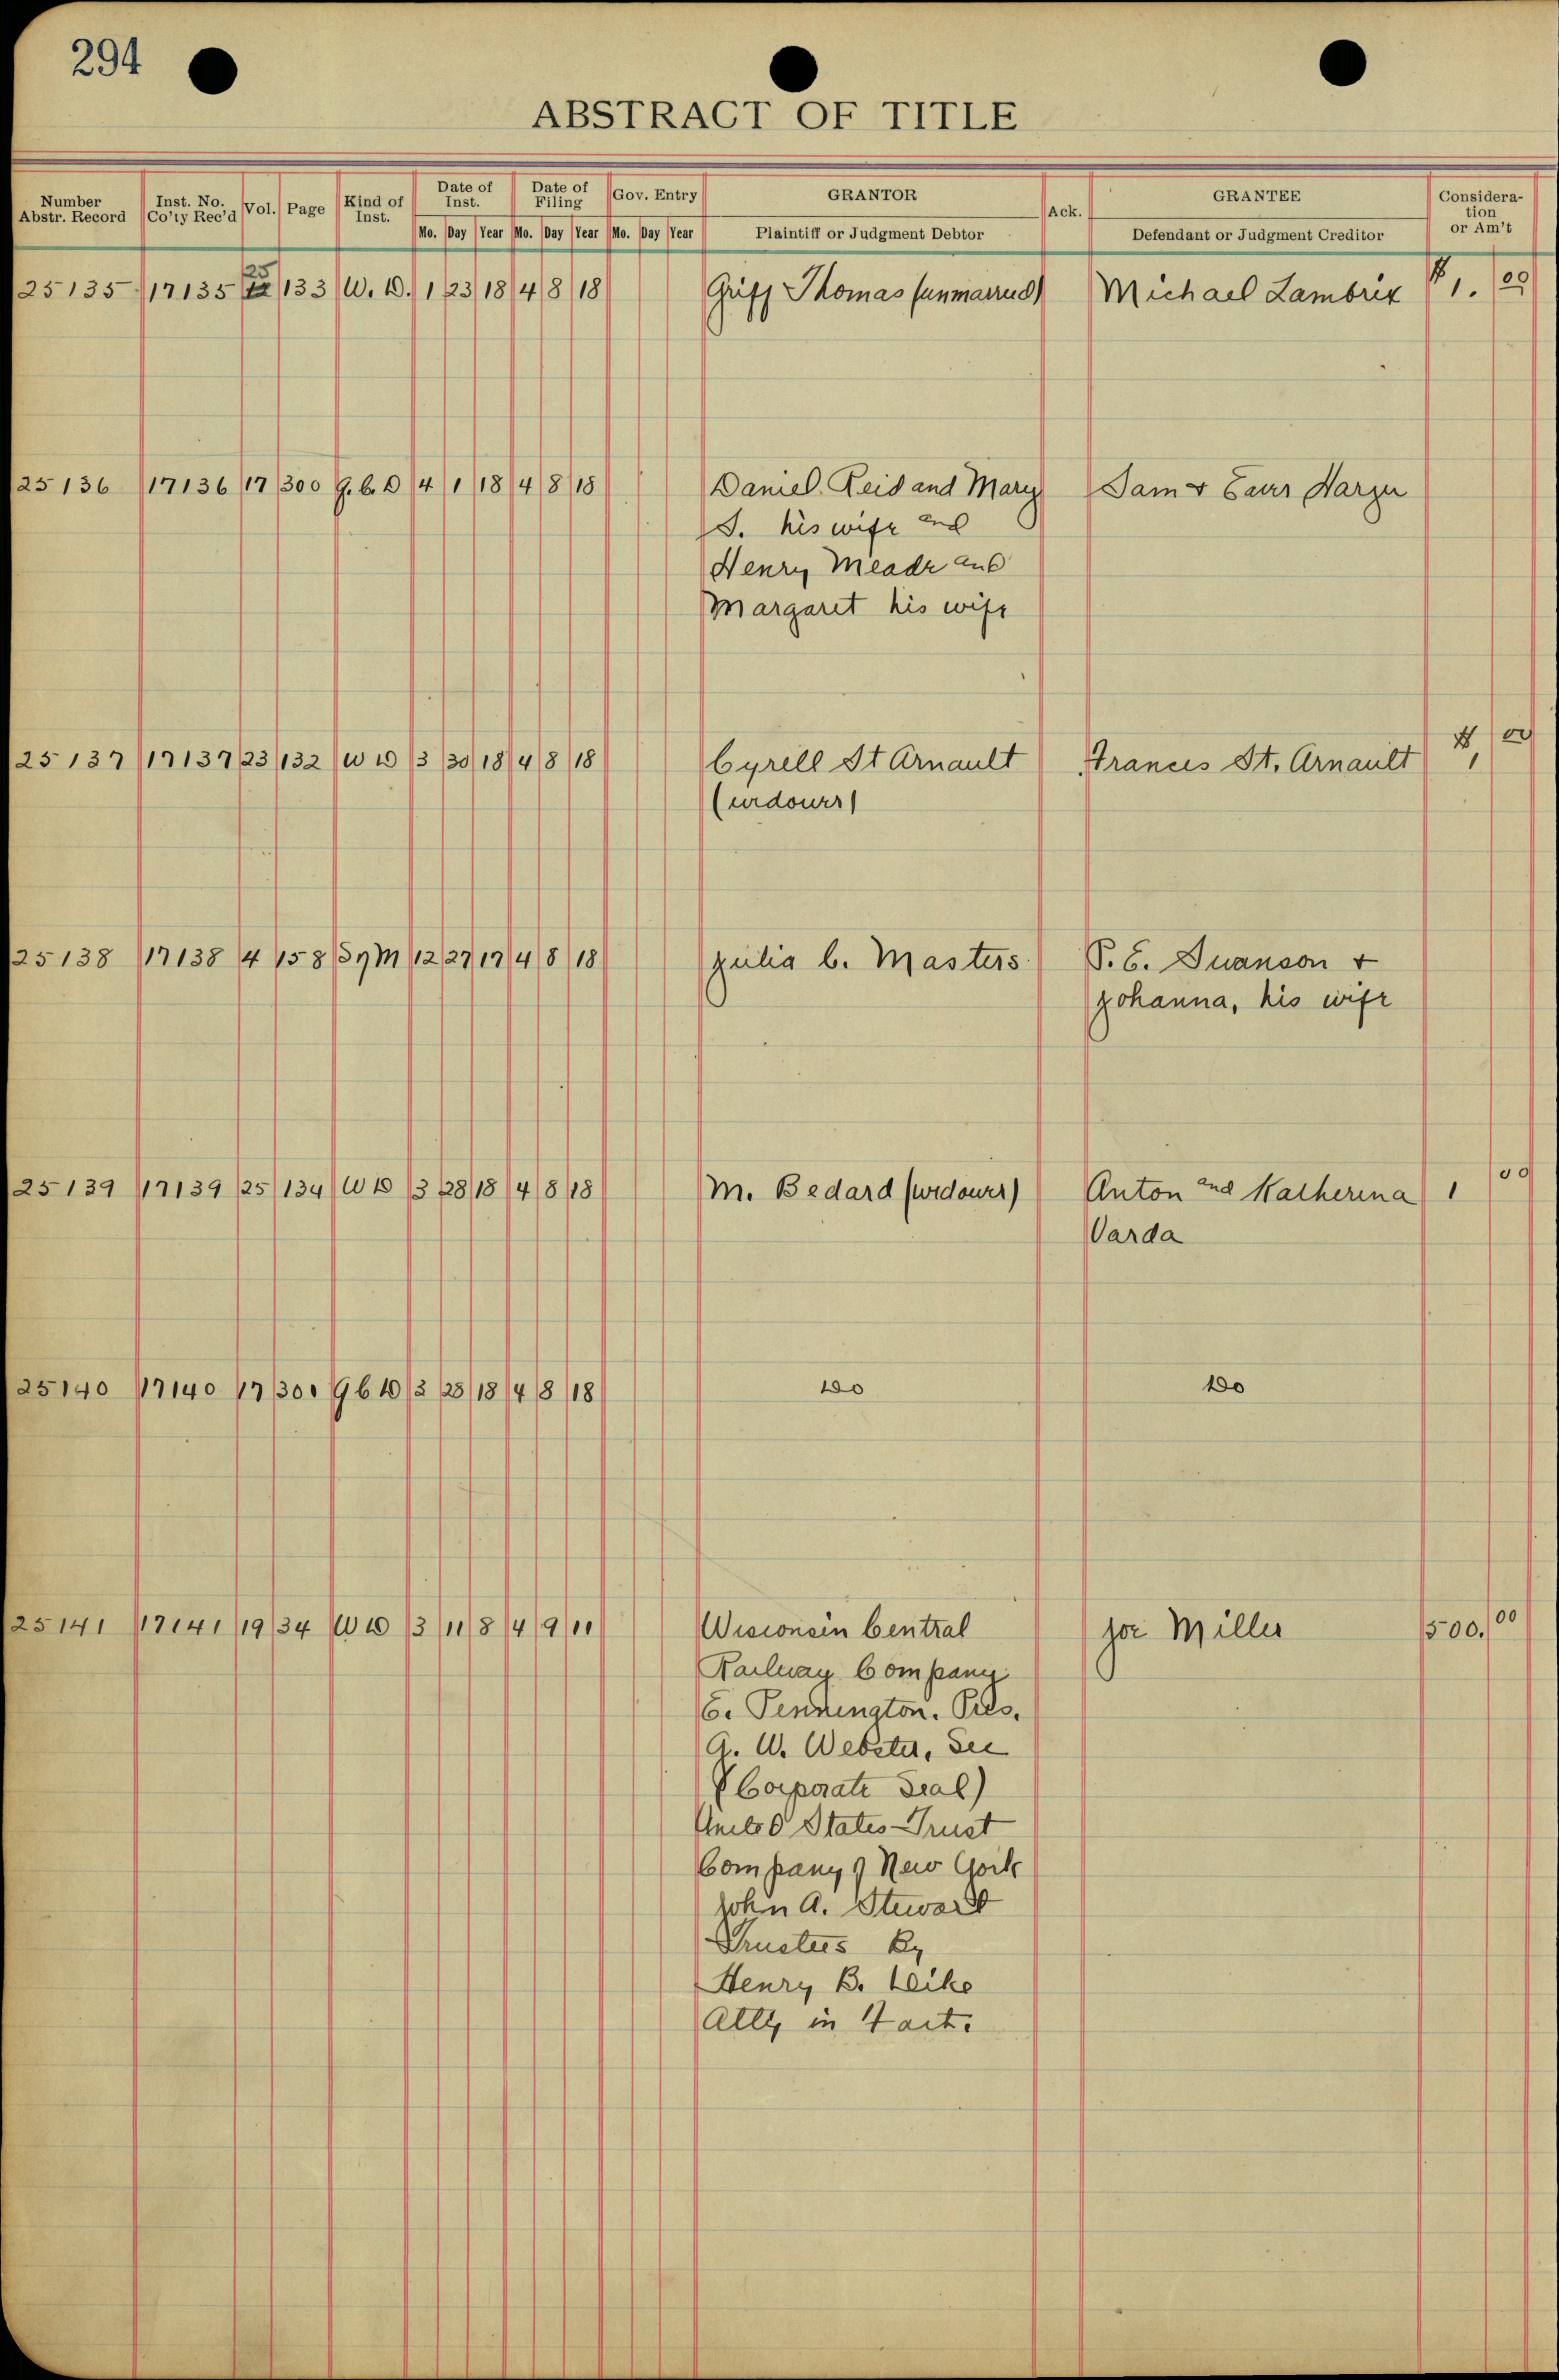 294
ABSTRACT OF TITLE
Number Abstr. Record | Inst. No. Co'ty Rec'd | Vol. | Page | Kind of Inst. | Date of Inst. | Date of Filing | Gov. Entry | GRANTOR | Ack. | GRANTEE | Consideration or Am't
Mo. Day Year Mo. Day Year Mo. Day Year | Plaintiff or Judgment Debtor | Defendant or Judgment Creditor
25135 17135 25 133 W. D. 1 23 18 4 8 18 Griff Thomas (unmarried) Michael Lambrix $1. 00
25136 17136 17 300 Q. C. D 4 1 18 4 8 18 Daniel Reid and Mary Sam &
S. his wife and
Henry Meade and
Margaret his wife
25137 17137 23 132 W D 3 30 18 4 8 18 Cyrell St Arnault Francis St. Arnault $1 00
(widower)
25138 17138 4 158 M 12 27 17 4 8 18 Julia C. Masters P. E. Swanson &
Johanna, his wife
25139 17139 25 134 W D 3 28 18 4 8 18 M. Bedard (widower) Anton and Katherina 1 00
Varda
25140 17140 17 301 Q C D 3 28 18 4 8 18 Do Do
25141 17141 19 34 W D 3 11 8 4 9 11 Wisconsin Central Joe Miller 500. 00
Railway Company
E. Pennington. Pres.
G. W. Webster, Sec
(Corporate Seal)
United States Trust
Company of New York
John A. Steward
Trustees By
Henry B.
Atty in Fact.